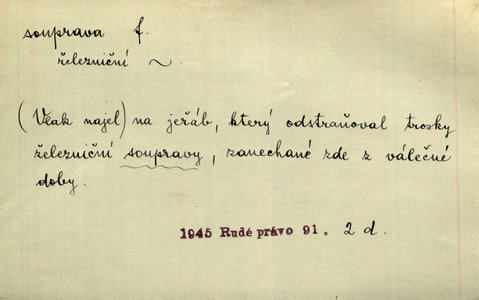 souprava f.
železniční ~
(Vlak najel) na jeřáb, který odstraňoval trosky
železniční soupravy, zanechané zde z válečné
doby.
1945 Rudé právo 91. 2 d.